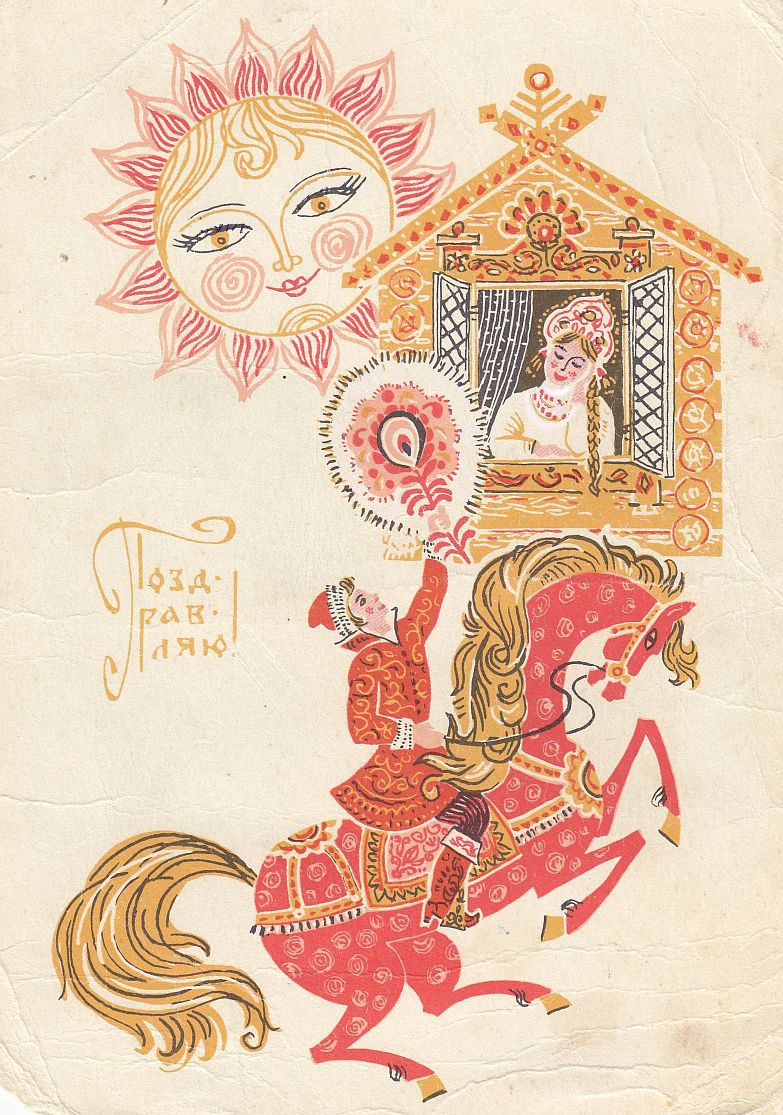 Позд-
рав-
ляю!